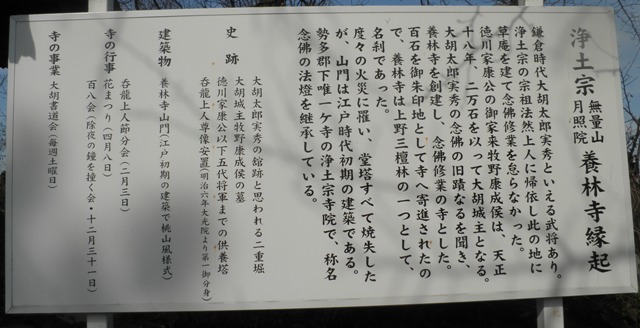 浄土宗 無量山 月照院 養林寺縁起
鎌倉時代大胡太郎実秀といえる武将あり。
浄土宗の宗祖法然上人に帰依し此の地に
草庵を建て念佛修業を怠らなかった。
徳川家康公の御家来牧野康成侯は、天正
十八年、二万石を以って大胡城主となる。
大胡太郎実秀の念佛の旧蹟なるを聞き、
養林寺を創建し、念佛修業の寺とした。
百石を御朱印地として寺へ寄進されたの
で、養林寺は上野三檀林の一つとして、
名刹であった。
度々の火災に罹い、堂塔すべて焼失した
が、山門は江戸時代初期の建築である。
勢多郡下唯一ヶ寺の浄土宗寺院で、称名
念佛の法燈を継承している。
史跡 大胡太郎実秀の舘跡と思われる二重堀
大胡城主牧野康成侯の墓
徳川家康公以下五代将軍までの供養塔
呑龍上人尊像安置(明治六年大光院より第一御分身)
建築物 養林寺山門(江戸初期の建築で桃山風様式)
寺の行事 呑龍上人節分会(二月三日)
花まつり(四月八日)
百八会(除夜の鐘を撞く会・十二月三十一日)
寺の事業 大胡書道会(毎週土曜日)